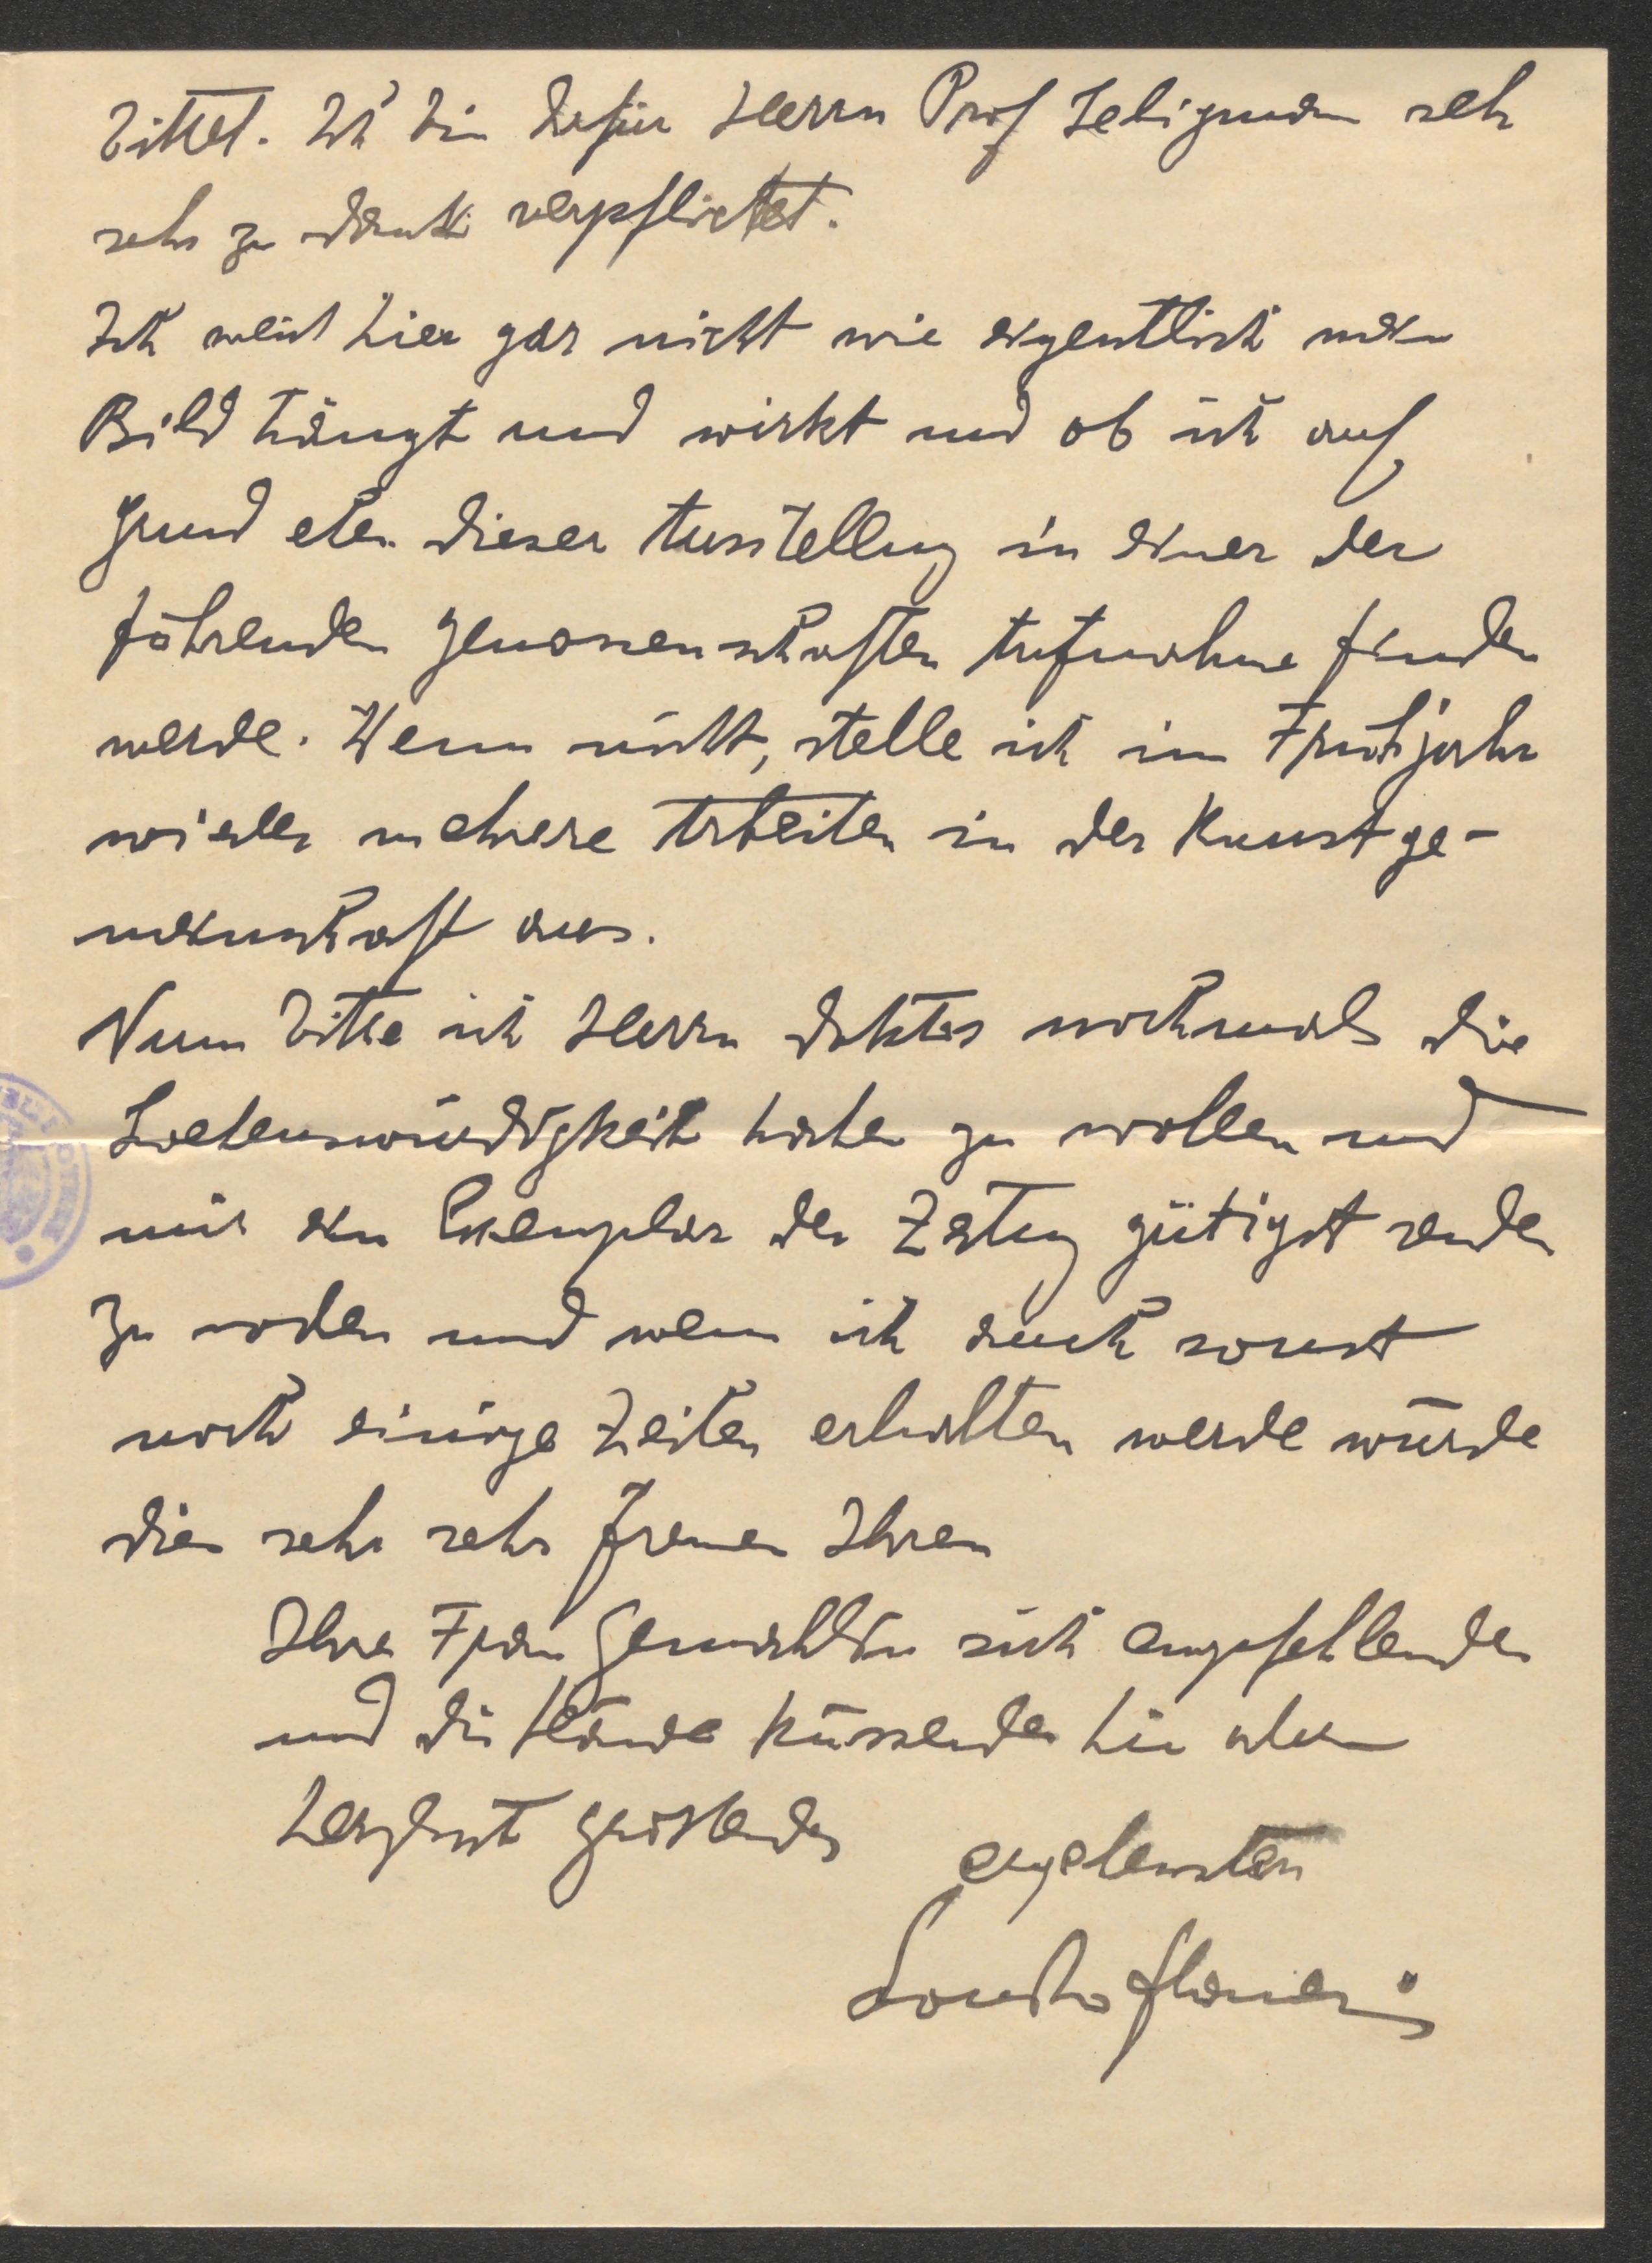 bittet. Ich bin dafür Herrn Prof Seligmann sehr
sehr zu dank verpflichtet.
Ich weiß hier gar nicht wie eigentlich mein
Bild hängt und wirkt und ob ich auf
Grund eben dieser Ausstellung in einer der
führenden Genossenschaften Aufnahme finden
werde. Wenn nicht, stelle ich im Frühjahr
wieder mehrere Arbeiten in der Kunstge-
meinschaft aus.
Nun bitte ich Herrn doktor nochmals die
Liebenswürdigkeit haben zu wollen und
mir ein Exemplar der Zeitung gütigst senden
zu wollen und wenn ich auch sonst
noch einige Zeilen erhalten werde würde
dies sehr sehr freuen Ihren
Ihrer Frau Gemahlin sich empfehlenden
und die Hände küssenden Sie aber
herzlichst grüßenden
ergebensten